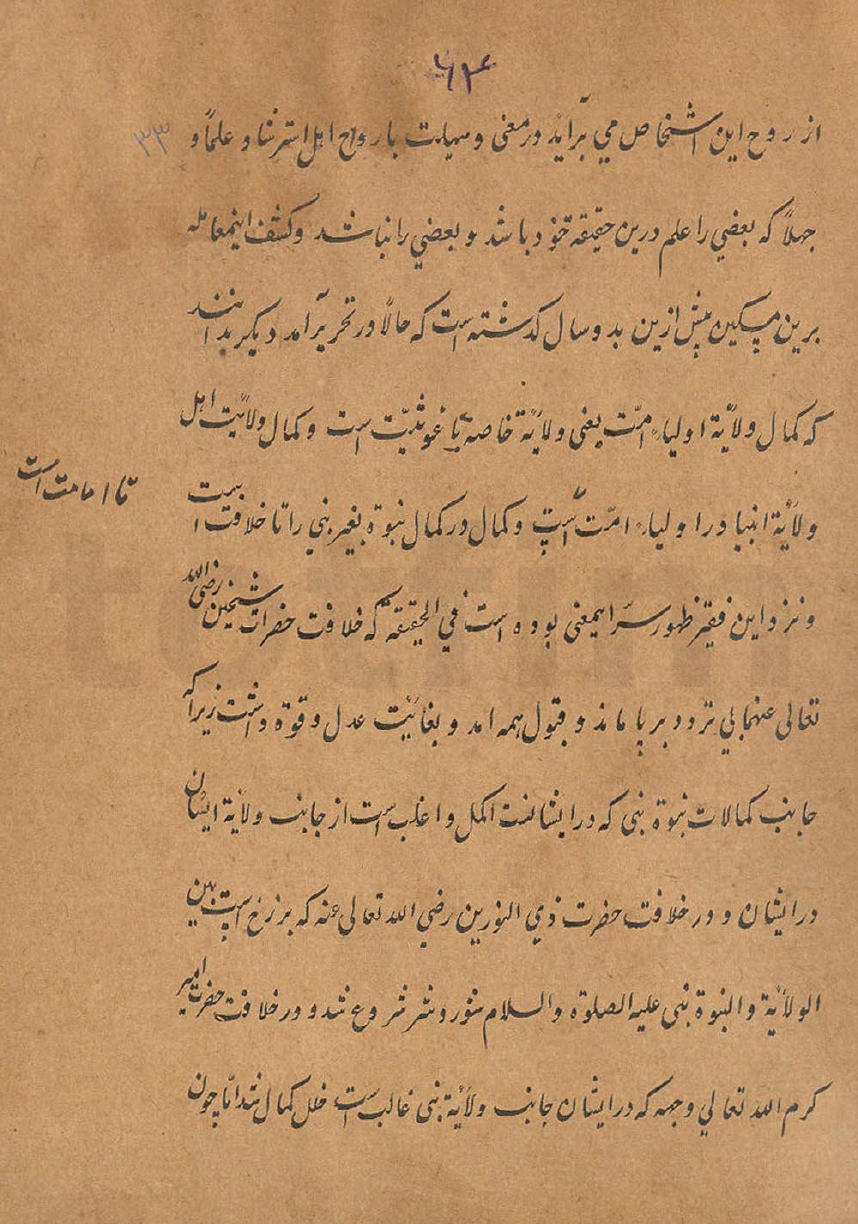 ۶۳
۳۳
از روح این اشخاص می برآید در معنی و سیلت بارواح اهل استرشاد علماً و
جهلاً که بعضي را علم درین حقیقة خود باشد و بعضي را نباشد و کشف اینمعامله
برین مسکین پیش ازین بدو سال کذشته است که حالا در تحریر آمد دیکر بدانند
که کمال ولایة اولیاء امّت یعنی ولایة خاصه تا غوثیّت است و کمال ولایت اهل
تا امامت است
ولایة انبیا در اولیاء امّت است و کمال در کمال نبوة بغیر نبي را تا خلافت است
و نزد این فقیر ظهور سرّ اینمعنی بوده است في الحقیقة که خلافت حضرات شیخین رضی الله
تعالی عنهما بي تردد برپا ماند و قبول همه امد و بغائیت عدل و قوة داشت زیرا که
جانب کمالات نبوة نبی که در ایشانست اکمل و اغلب است از جانب ولایة ایشان
در ایشان و در خلافت حضرت ذي النورین رضي الله تعالی عنه که برزخ است بین
الولایة والنبوة نبی علیه الصلوة والسلام شور و شر شروع شد و در خلافت حضرت امیر
کرم الله تعالي وجهه که در ایشان جانب ولایة نبی غالب است خلل کمال شد امّا چون